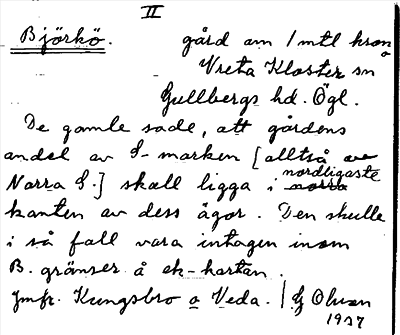 II
Björkö. gård om 1 mtl krono
Vreta Kloster sn
Gullbergs hd. Ögl.
De gamle sade, att gårdens
andel av S-marken [alltså av
Norra S.] skall ligga i nordligaste norra
kanten av dess ägor. Den skulle
i så fall vara intagen inom
B. gränser å ek-kartan.
Jmfr. Kungsbro o Veda. | G Olson
1937